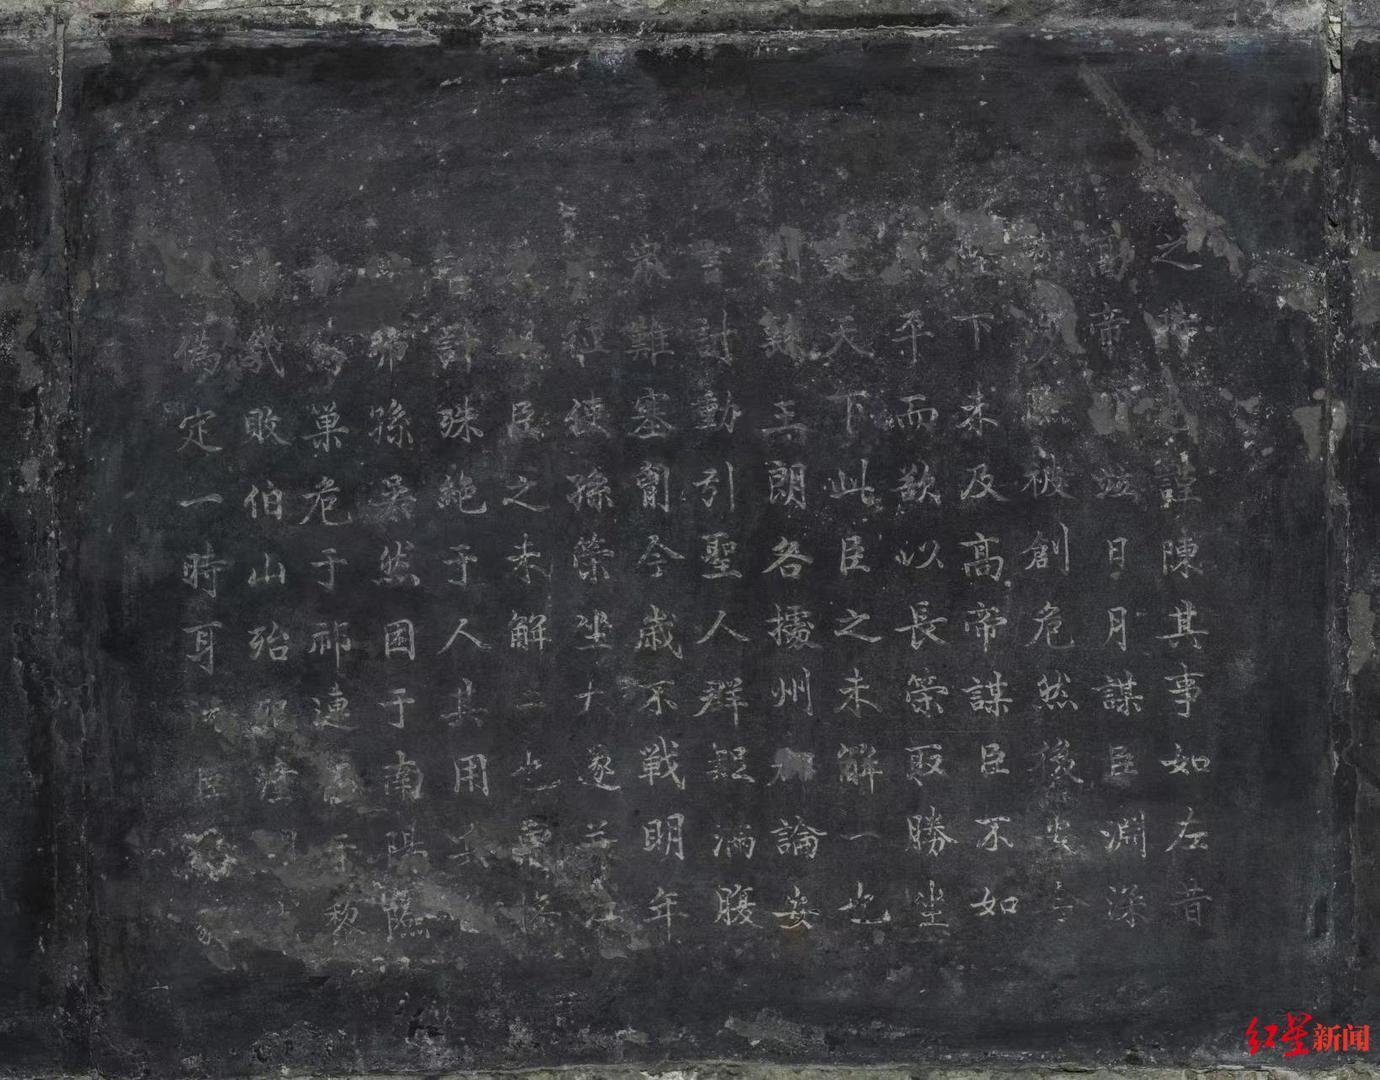 之時謹陳其事如左昔
高帝並日月謀臣淵深
被創危然後安今
下未及高帝謀臣不如
平而欲以長策取勝坐
定天下此臣之未解一也
劉繇王朗各據州郡論安
言計動引聖人群疑滿腹
眾難塞胷今歲不戰明年
征使孫策坐大遂并江
臣之未解二也曹操
計殊絶于人其用兵
孫吳然困于南陽險
烏巢危于祁連于黎
幾敗伯山殆死潼關
偽定一時耳況臣